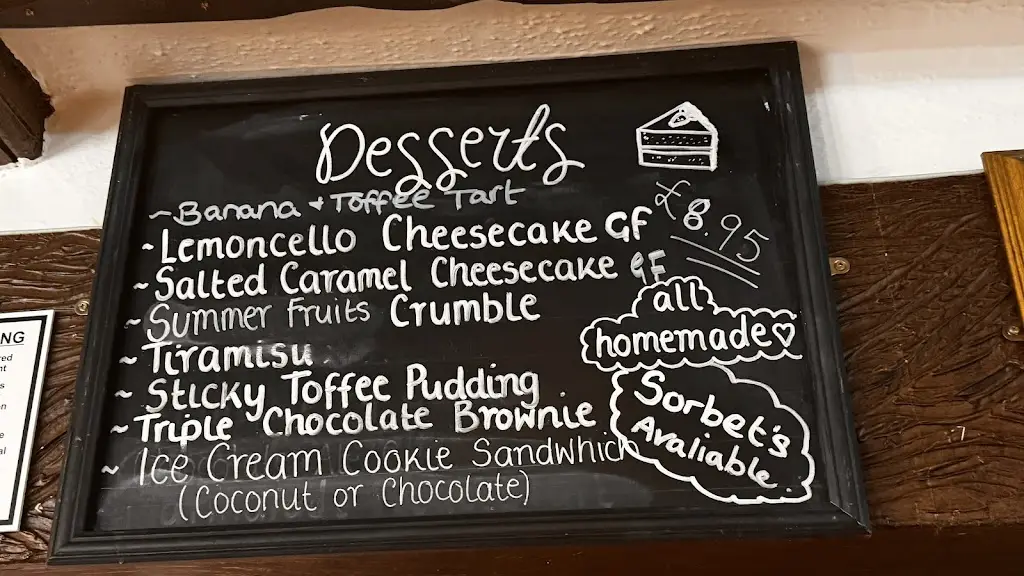 Desserts
~ Banana + Toffee Tart
~ Lemoncello Cheesecake GF
~ Salted Caramel Cheesecake GF
~ Summer Fruits Crumble
~ Tiramisu
~ Sticky Toffee Pudding
~ Triple Chocolate Brownie
~ Ice Cream Cookie Sandwhich
(Coconut or Chocolate)
£8.95
all
homemade♡
Sorbet's
Avaliable
NG